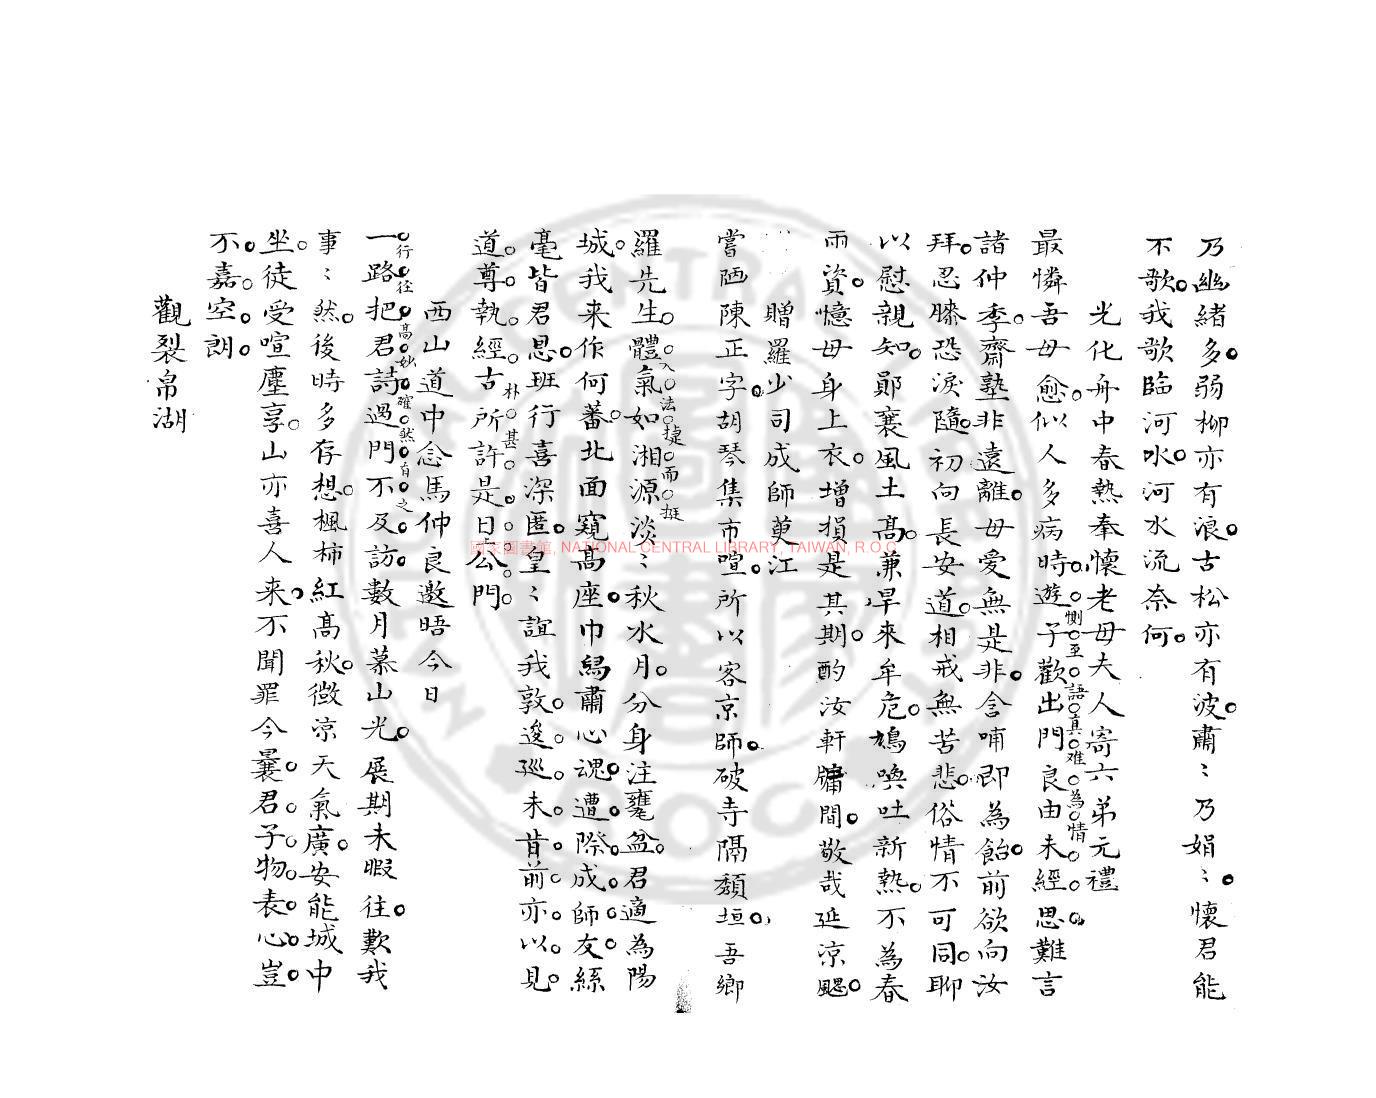 乃幽緒多弱柳亦有浪古松亦有波肅〻乃娟〻懷君能
不歌我歌臨河水河水流奈何
光化舟中春熱奉懷老母夫人寄六弟元禮
惻至語真难為情
最憐吾母愈似人多病時遊子歡出門良由未經思難言
諸仲季齋塾非遠離母愛無是非含哺即為飴前欲向汝
拜忍膝恐淚隨初向長安道相戒無苦悲俗情不可同聊
以慰親知鄖襄風土高兼旱來牟危鳩喚吐新熱不為春
雨資憶母身上衣增損是其期酌汝軒牗間敬哉延涼颸
贈羅少司成師萸江
嘗陋陳正字胡琴集市喧所以客京師破寺隔頹垣吾鄉
入法捷而挺
羅先生體氣如湘源淡〻秋水月分身注甕盆君適為陽
城我来作何蕃北面窺高座巾舄肅心魂遭際成師友絲
毫皆君恩班行喜深匿皇〻誼我敦逡巡未肯前亦以見
朴甚
道尊執經古所許是日公門
西山道中念馬仲良邀晤今日
行径高妙確然自之
一路把君詩過門不及訪數月慕山光展期未暇往歎我
事〻然後時多存想楓柿紅高秋微凉天氣廣安能城中
坐徒受喧塵享山亦喜人来不聞罪今曩君子物表心豈
不嘉空朗
觀裂帛湖
國家圖書館, NATIONAL CENTRAL LIBRARY, TAIWAN, R.O.C